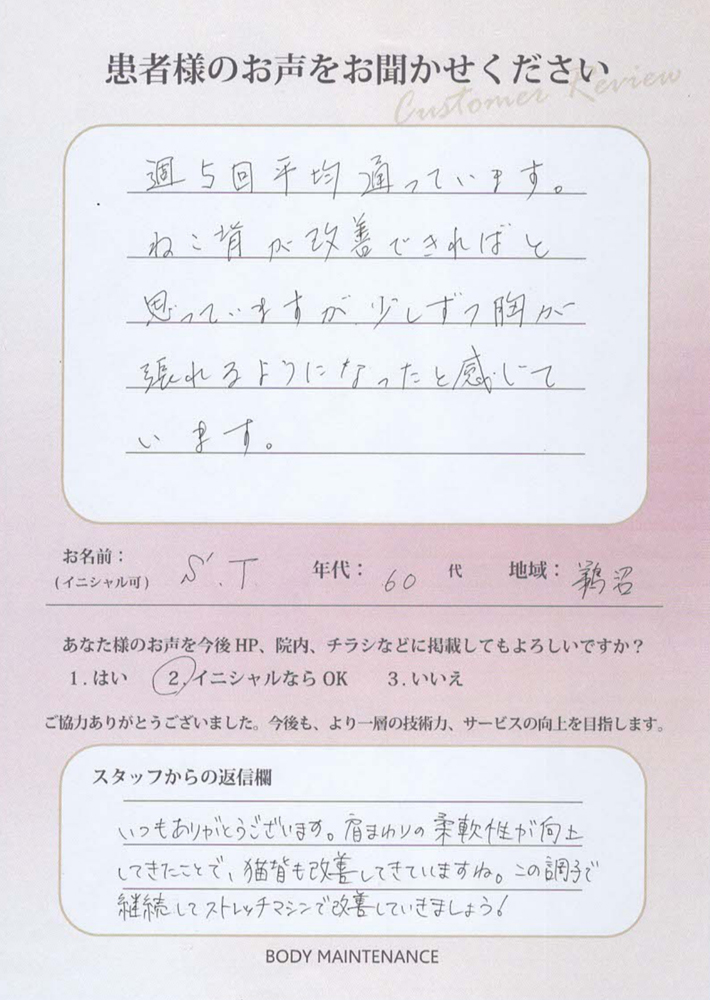 患者様のお声をお聞かせください
Customer Review
週5回平均通っています。
ねこ背が改善できればと
思っていますが少しずつ胸が
張れるようになったと感じて
います。
お名前：
(イニシャル可) S.T 年代： 60 代 地域： 鵜沼
あなた様のお声を今後HP、院内、チラシなどに掲載してもよろしいですか？
1.はい 2.イニシャルならOK 3.いいえ
ご協力ありがとうございました。今後も、より一層の技術力、サービスの向上を目指します。
スタッフからの返信欄
いつもありがとうございます。肩まわりの柔軟性が向上
してきたことで、猫背も改善してきていますね。この調子で
継続してストレッチマシンで改善していきましょう！
BODY MAINTENANCE